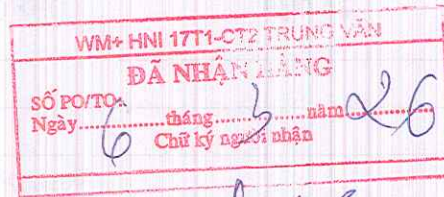 WM+ HNI 17T1-CT2 TRUNG VĂN
ĐÃ NHẬN HÀNG
SỐ PO/TO:
Ngày 6 tháng 3 năm 26
Chữ ký người nhận